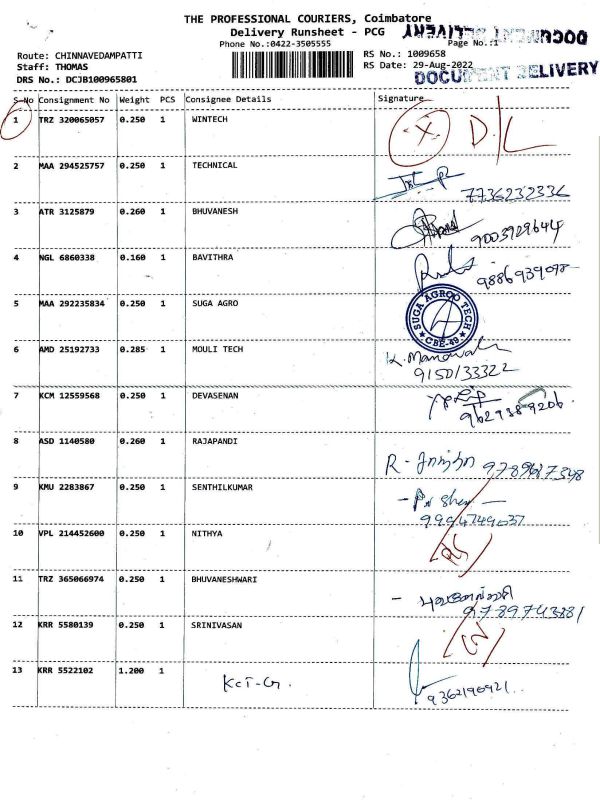 THE PROFESSIONAL COURIERS, Coimbatore
Delivery Runsheet - PCG
Phone No.:0422-3505555
Page No.:1
DOCUMENT DELIVERY
Route: CHINNAVEDAMPATTI
RS No.: 1009658
Staff: THOMAS
RS Date: 29-Aug-2022
DRS No.: DCJB100965801
DOCUMENT DELIVERY
S-No Consignment No Weight PCS Consignee Details Signature
1 TRZ 320065057 0.250 1 WINTECH X D/L
2 MAA 294525757 0.250 1 TECHNICAL
7736232336
3 ATR 3125879 0.260 1 BHUVANESH
9003929644
4 NGL 6860338 0.160 1 BAVITHRA
9886939098
5 MAA 292235834 0.250 1 SUGA AGRO
SUGA AGROO TECH
CBE-49
6 AMD 25192733 0.285 1 MOULI TECH
9150133322
7 KCM 12559568 0.250 1 DEVASENAN
9629389206
8 ASD 1140580 0.260 1 RAJAPANDI
9789617348
9 KMU 2283867 0.250 1 SENTHILKUMAR
9994749037
10 VPL 214452600 0.250 1 NITHYA
11 TRZ 365066974 0.250 1 BHUVANESHWARI
9789743881
12 KRR 5580139 0.250 1 SRINIVASAN
13 KRR 5522102 1.200 1 KCT-G.
9362190921